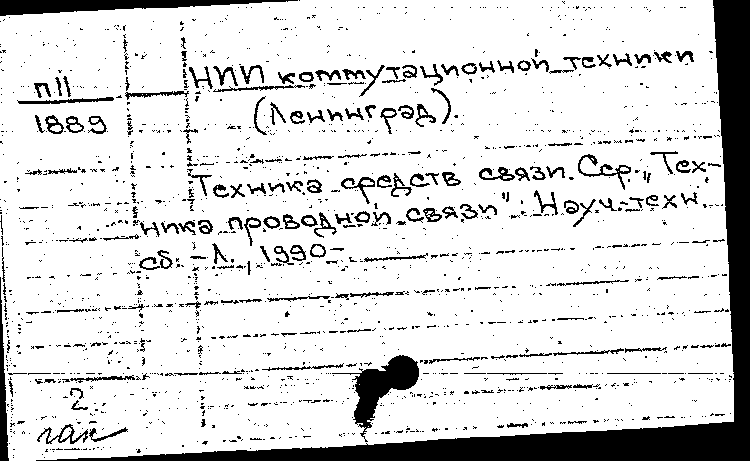 п11
1889
НИИ коммутационной техники
(Ленинград).
Техника средств связи. Сер. „Тех-
ника проводной связи": Науч.-техн.
сб. - Л., 1990-
2